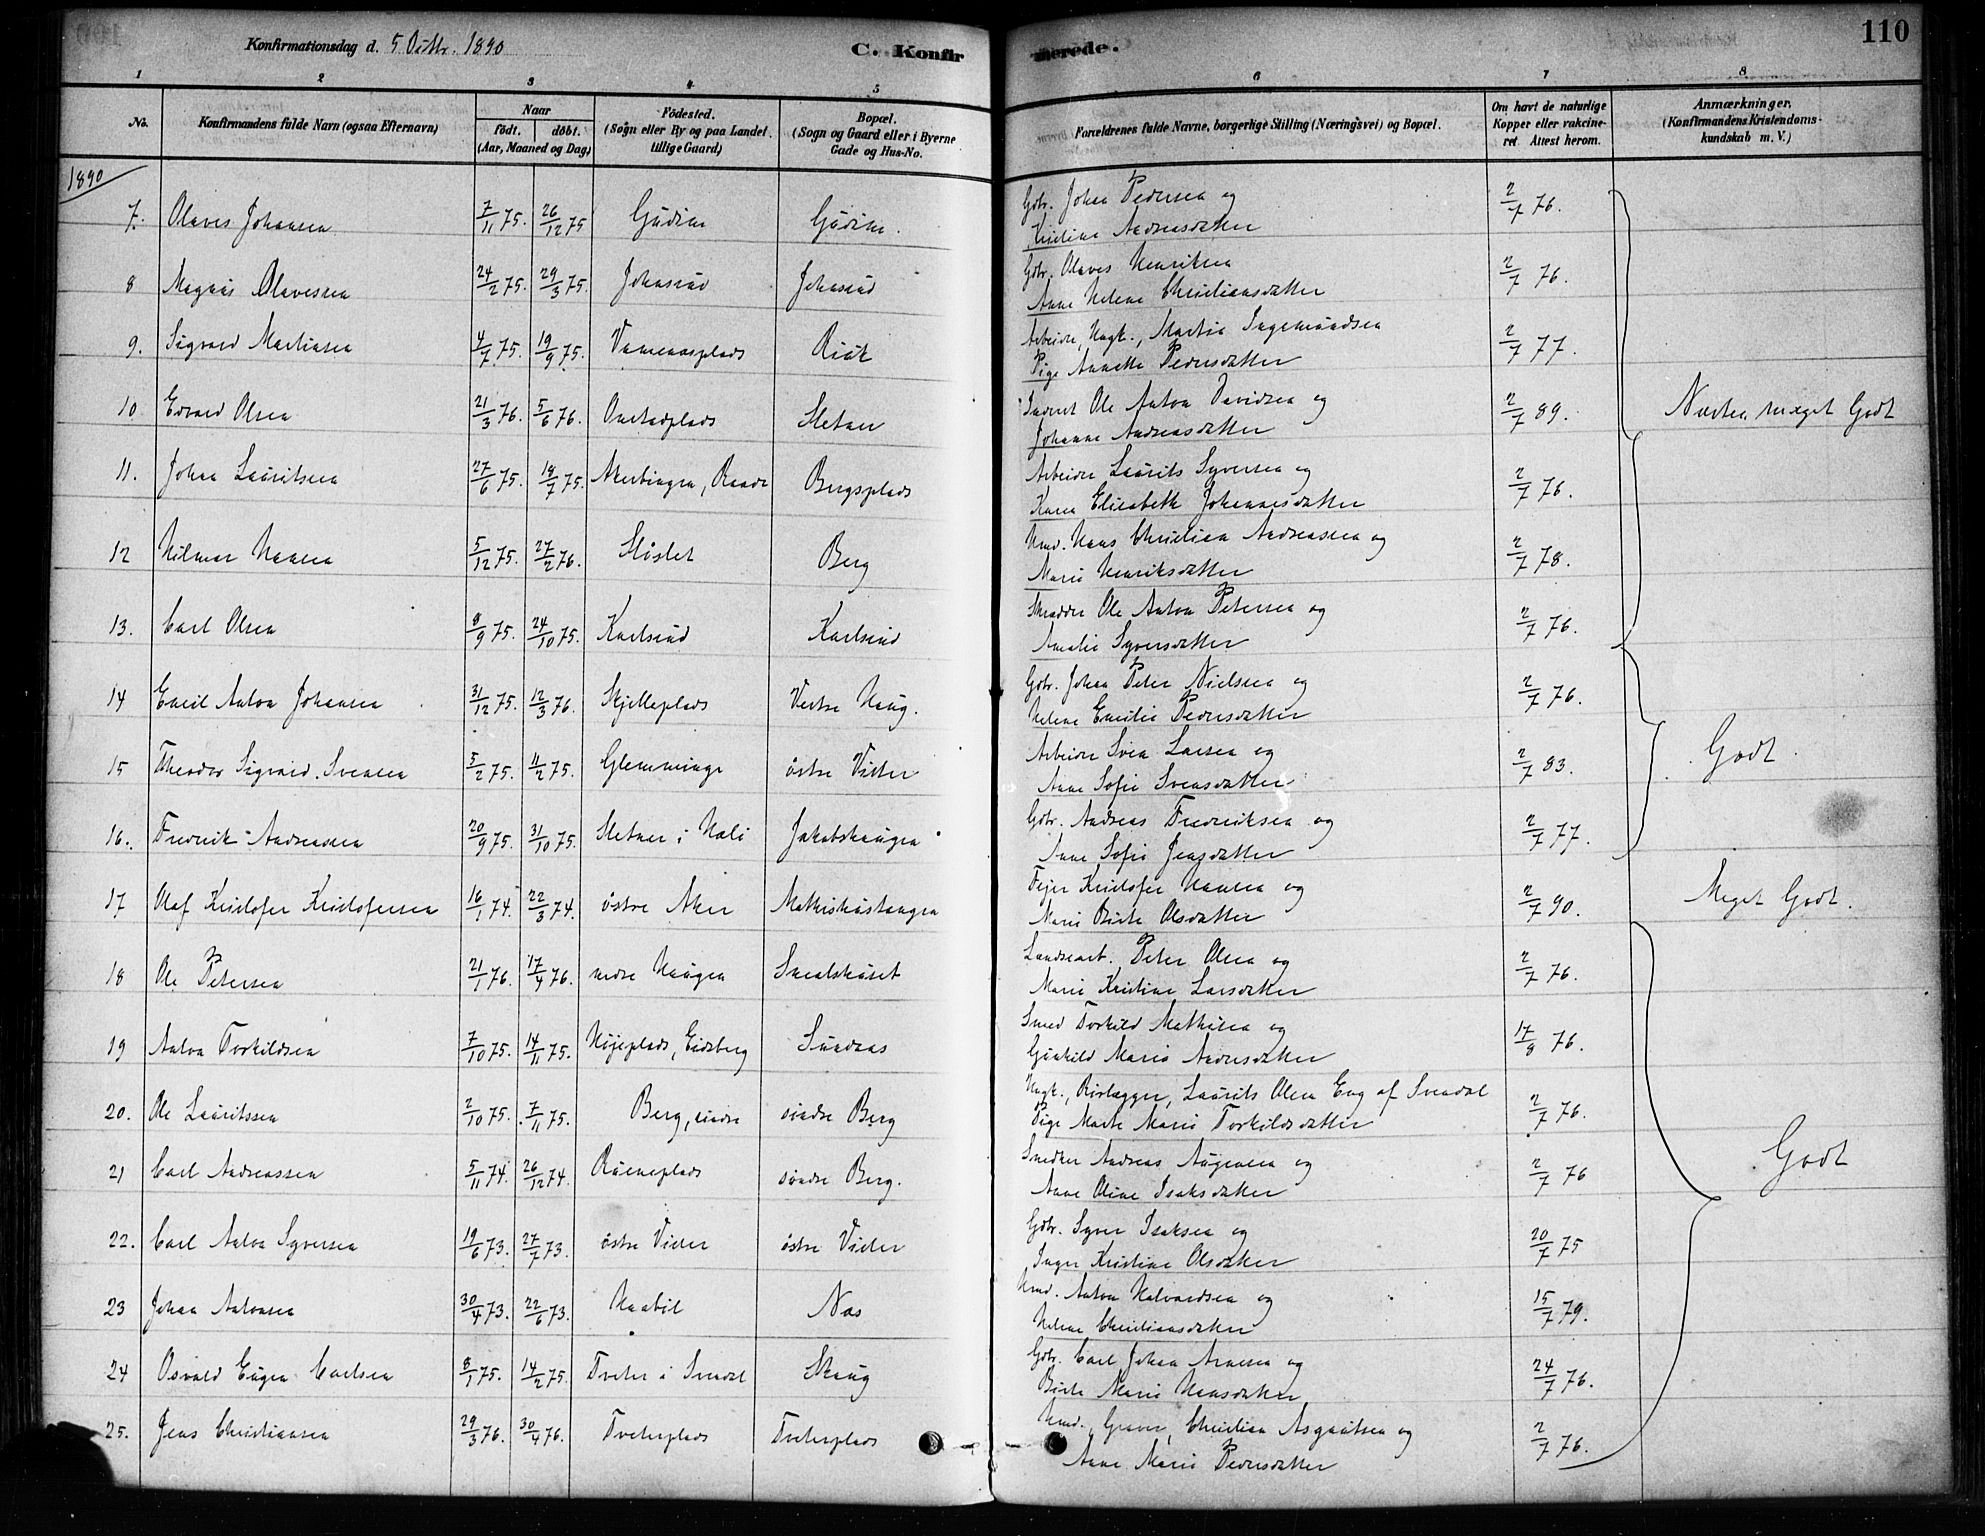 Konfirmationsdag d. 5 Octbr. 1890
C. Konfirmerede.
110
1 2 3 4 5 6 7 8
No.
Konfirmandens fulde Navn (ogsaa Efternavn)
Naar
födt. döbt.
(Aar, Maaned og Dag)
Födested.
(Sogn eller By og paa Landet tillige Gaard)
Bopæl.
(Sogn og Gaard eller i Byerne Gade og Hus-No.
Forældrenes fulde Navne, borgerlige Stilling (Næringsvei) og Bopæl.
Om havt de naturlige Kopper eller vakcineret Attest herom.
Anmærkninger.
(Konfirmandens Kristendomskundskab m. V.)
1890
7. Olaves Johansen 7/11 75. 26/12 75 Gudim Gudim. Gbr. Johan Pedersen og Kristine Andreasdatter 2/7 76.
8 Magnus Olavessen 24/2 75. 29/3 75. Johnsrud Johnsrud Gbr. Olaves Henriksen Anne Helene Christiansdatter 2/7 76.
9. Sigvard Martinsen 4/7 75. 19/9 75. Riök Arbeider, Ungk., Martin Ingemundsen Pige Annette Pedersdatter 2/7 77.
10 Edvard Olsen 21/3 76. 5/6 76. Onstadplads Sletner Inderst Ole Anton Davidsen og Johanne Andreasdatter 2/7 89. Næsten meget Godt
11. Johan Lauritsen 27/6 75. 18/7 75. Akerbingen, Raade Bergsplads Arbeider Laurits Syversen og Karen Elisabeth Johannesdatter 2/7 76.
12 Hilmar Hansen 5/12 75. 27/2 76. Slöslet Berg Hmd. Hans Christian Andreassen og Marie Henriksdatter 2/7 78.
13. Carl Olsen 8/9 75. 24/10 75. Karlsrud Karlsrud Skrædder Ole Anton Petersen og Amalie Syversdatter 2/7 76.
14 Emil Anton Johansen 31/12 75. 12/3 76. Skjelleplads Vestre Haug. Gbr. Johan Peter Nielsen og Helene Emilie Pedersdatter 2/7 76.
15 Theodor Sigvard Svensen 5/2 75. 11/2 75. Glemminge östre Vister Arbeider Sven Larsen og Anne Sofie Svensdatter 2/7 83. Godt.
16. Fredrik Andreassen 20/9 75. 31/10 75. Sletner i Hæli Jakobshaugen Gbr. Andreas Fredriksen og Anne Sofie Jensdatter 2/7 77.
17 Olaf Kristofer Kristofersen 16/1 74. 22/3 74. östre Aker Mathishustangen Fejer Kristofer Hansen og Marie Birte Olsdatter 2/7 90. Meget Godt.
18 Ole Petersen 21/1 76. 17/4 76. nedre Haugen Smedshuset Landsart. Peter Olsen og Marie Kristine Larsdatter 2/7 76.
19 Anton Torkildsen 7/10 75. 14/11 75. Höjeplads, Eidsberg Sundaas Smed Torkild Mathisen og Gunhild Marie Andersdatter 17/8 76.
20. Ole Lauritssen 2/10 75. 7/11 75. Berg, söndre söndre Berg Ungk., Rörlægger, Laurits Olsen Eng af Svendal Pige Marte Marie Torkildsdatter 2/7 76.
21 Carl Andreassen 5/11 74. 26/12 74. söndre Berg. Snedker Andreas Augensen og Anne Oline Isaksdatter 2/7 76 Godt
22. Carl Anton Syversen 19/6 73. 27/7 73. östre Vister östre Vister Gbr. Syver Isaksen og Inger Kristine Olsdatter 20/7 75
23 Johan Antonsen 30/4 73. 22/6 73. Haaböl Næs Hmd. Anton Halvardsen og Helene Christiansdatter 15/7 79.
24 Osvald Eugen Carlsen 8/1 75. 14/2 75. Tveter i Svndal Skaug Gbr. Carl Johan Arnesen og Birte Marie Hansdatter 24/7 76.
25. Jens Christiansen 29/3 76. 30/4 76. Tveterplads Tveterplads Hmd., Graver, Christian Asgautsen og Anne Marie Pedersdatter 2/7 76.